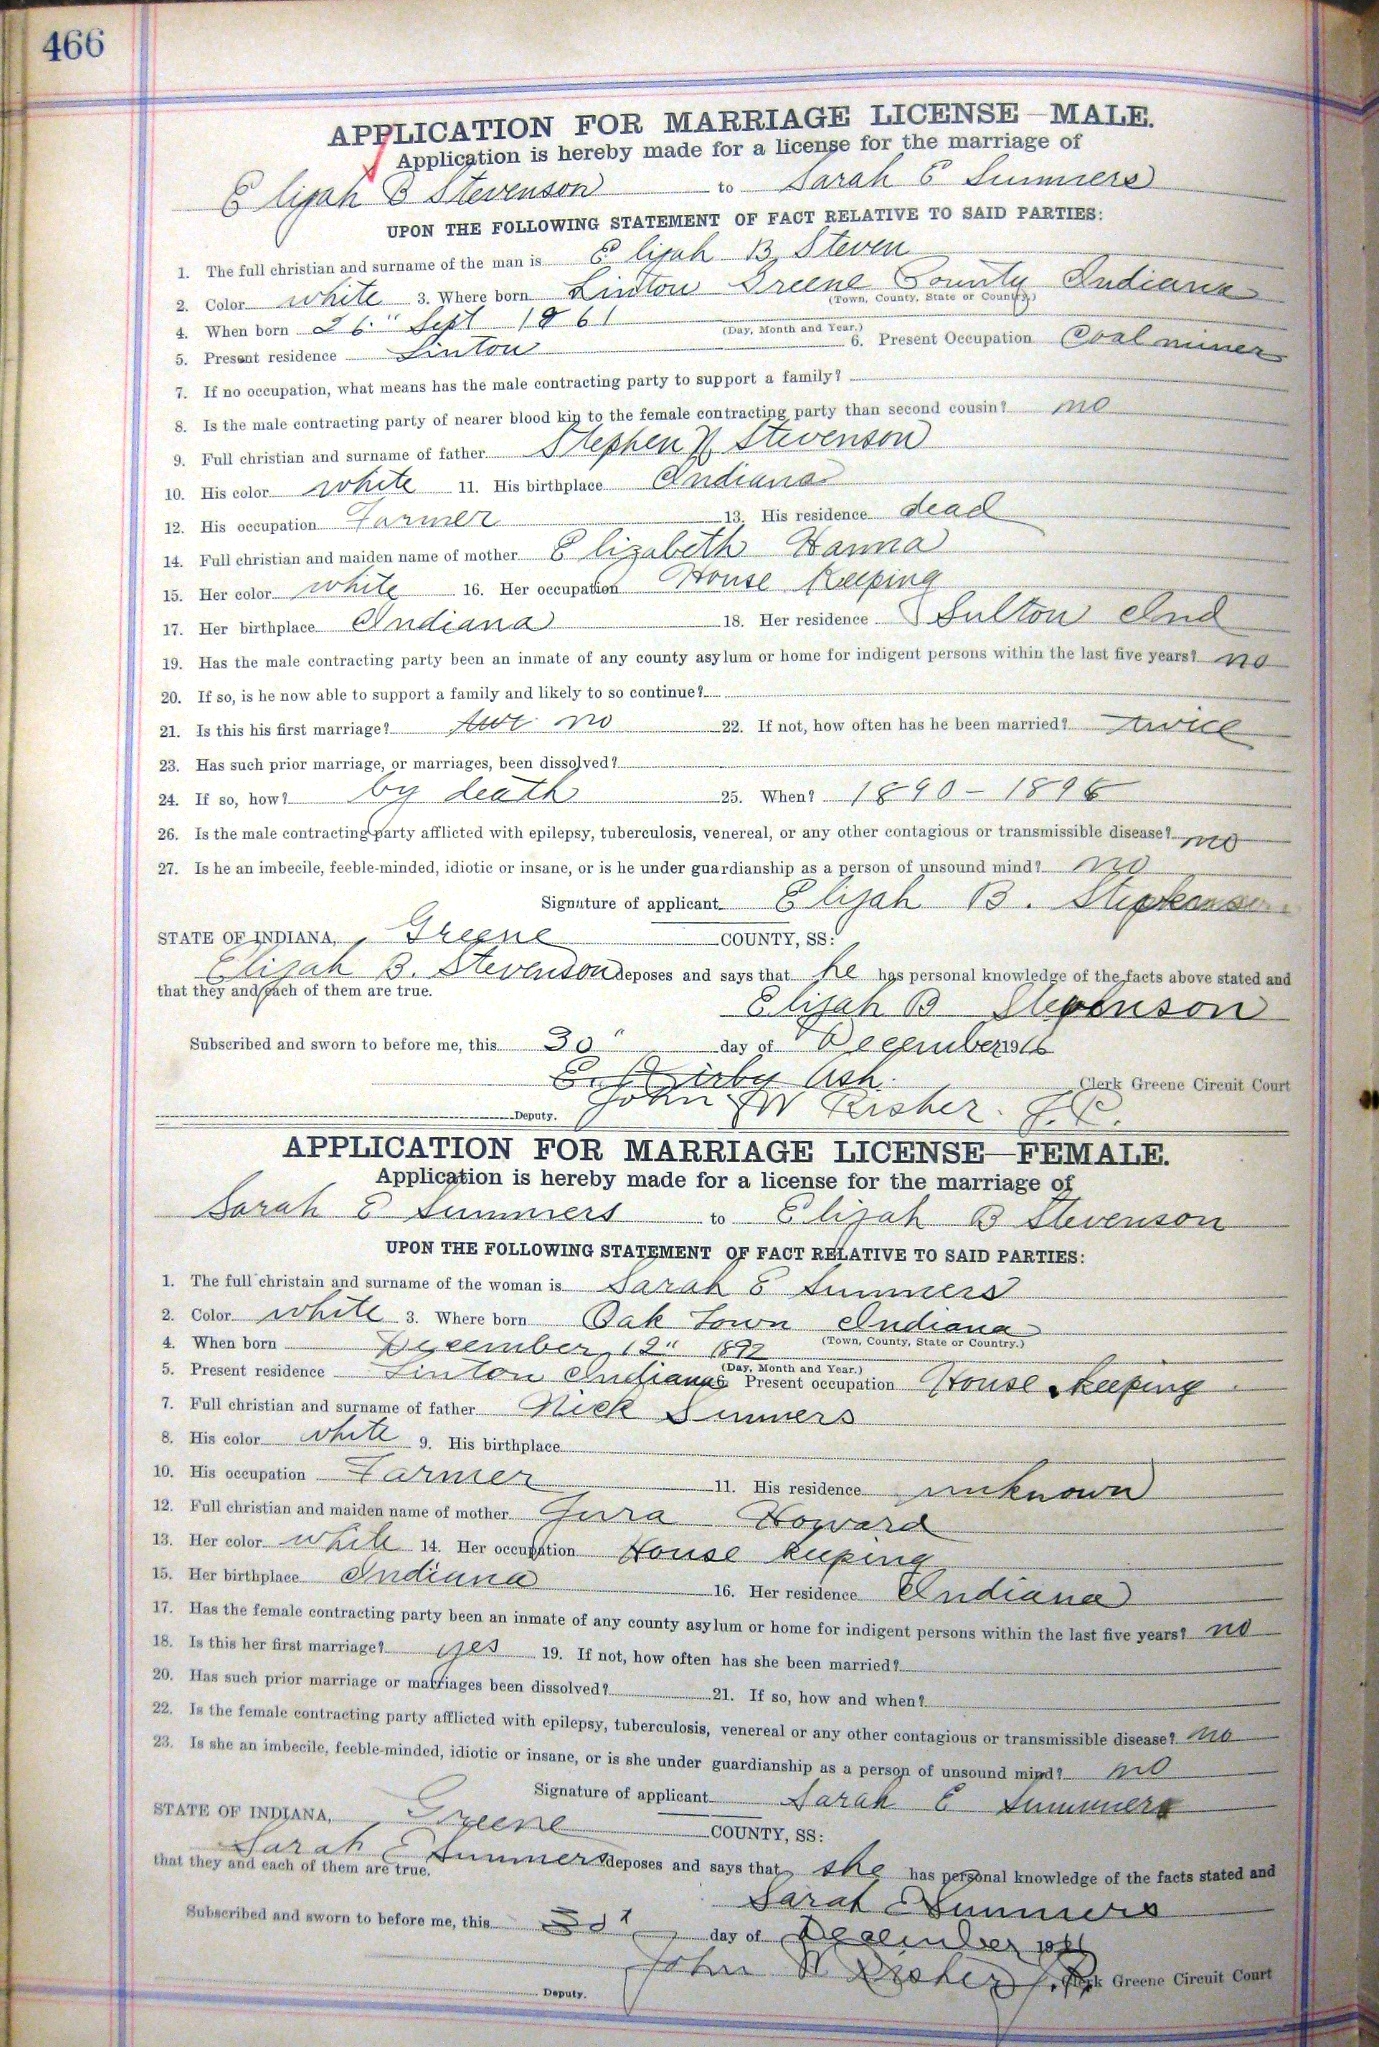 466
APPLICATION FOR MARRIAGE LICENSE—MALE.
Application is hereby made for a license for the marriage of
Elijah B Stevenson to Sarah E Summers
UPON THE FOLLOWING STATEMENT OF FACT RELATIVE TO SAID PARTIES:
1. The full christian and surname of the man is Elijah B Steven
2. Color white 3. Where born Linton Greene County Indiana
(Town, County, State or Country.)
4. When born 26" Sept 1861 (Day, Month and Year.)
5. Present residence Linton 6. Present Occupation Coal miner
7. If no occupation, what means has the male contracting party to support a family?
8. Is the male contracting party of nearer blood kin to the female contracting party than second cousin? no
9. Full christian and surname of father Stephen N Stevenson
10. His color white 11. His birthplace Indiana
12. His occupation Farmer 13. His residence dead
14. Full christian and maiden name of mother Elizabeth Hanna
15. Her color white 16. Her occupation House Keeping
17. Her birthplace Indiana 18. Her residence Sulton Ind
19. Has the male contracting party been an inmate of any county asylum or home for indigent persons within the last five years? no
20. If so, is he now able to support a family and likely to so continue?
21. Is this his first marriage? no 22. If not, how often has he been married? twice
23. Has such prior marriage, or marriages, been dissolved?
24. If so, how? by death 25. When? 1890 - 1896
26. Is the male contracting party afflicted with epilepsy, tuberculosis, venereal, or any other contagious or transmissible disease? no
27. Is he an imbecile, feeble-minded, idiotic or insane, or is he under guardianship as a person of unsound mind? no
Signature of applicant Elijah B.
STATE OF INDIANA, Greene COUNTY, SS:
Elijah B. Stevenson deposes and says that he has personal knowledge of the facts above stated and
that they and each of them are true.
Elijah B Stevenson
Subscribed and sworn to before me, this 30" day of December 1916
E. Kirby Ash. Clerk Greene Circuit Court
Deputy. John W Risher. J.P.
APPLICATION FOR MARRIAGE LICENSE—FEMALE.
Application is hereby made for a license for the marriage of
Sarah E Summers to Elijah B Stevenson
UPON THE FOLLOWING STATEMENT OF FACT RELATIVE TO SAID PARTIES:
1. The full christain and surname of the woman is Sarah E Summers
2. Color white 3. Where born Oak Town Indiana
(Town, County, State or Country.)
4. When born December 12" 1892 (Day, Month and Year.)
5. Present residence Linton Indiana 6. Present occupation House keeping
7. Full christian and surname of father Nick Summers
8. His color white 9. His birthplace
10. His occupation Farmer 11. His residence unknown
12. Full christian and maiden name of mother Howard
13. Her color white 14. Her occupation House keeping
15. Her birthplace Indiana 16. Her residence Indiana
17. Has the female contracting party been an inmate of any county asylum or home for indigent persons within the last five years? no
18. Is this her first marriage? yes 19. If not, how often has she been married?
20. Has such prior marriage or marriages been dissolved? 21. If so, how and when?
22. Is the female contracting party afflicted with epilepsy, tuberculosis, venereal or any other contagious or transmissible disease? no
23. Is she an imbecile, feeble-minded, idiotic or insane, or is she under guardianship as a person of unsound mind? no
Signature of applicant Sarah E Summers
STATE OF INDIANA, Greene COUNTY, SS:
Sarah E Summers deposes and says that she has personal knowledge of the facts stated and
that they and each of them are true.
Sarah E Summers
Subscribed and sworn to before me, this 30" day of December 1916
John W Risher J.P. Clerk Greene Circuit Court
Deputy.